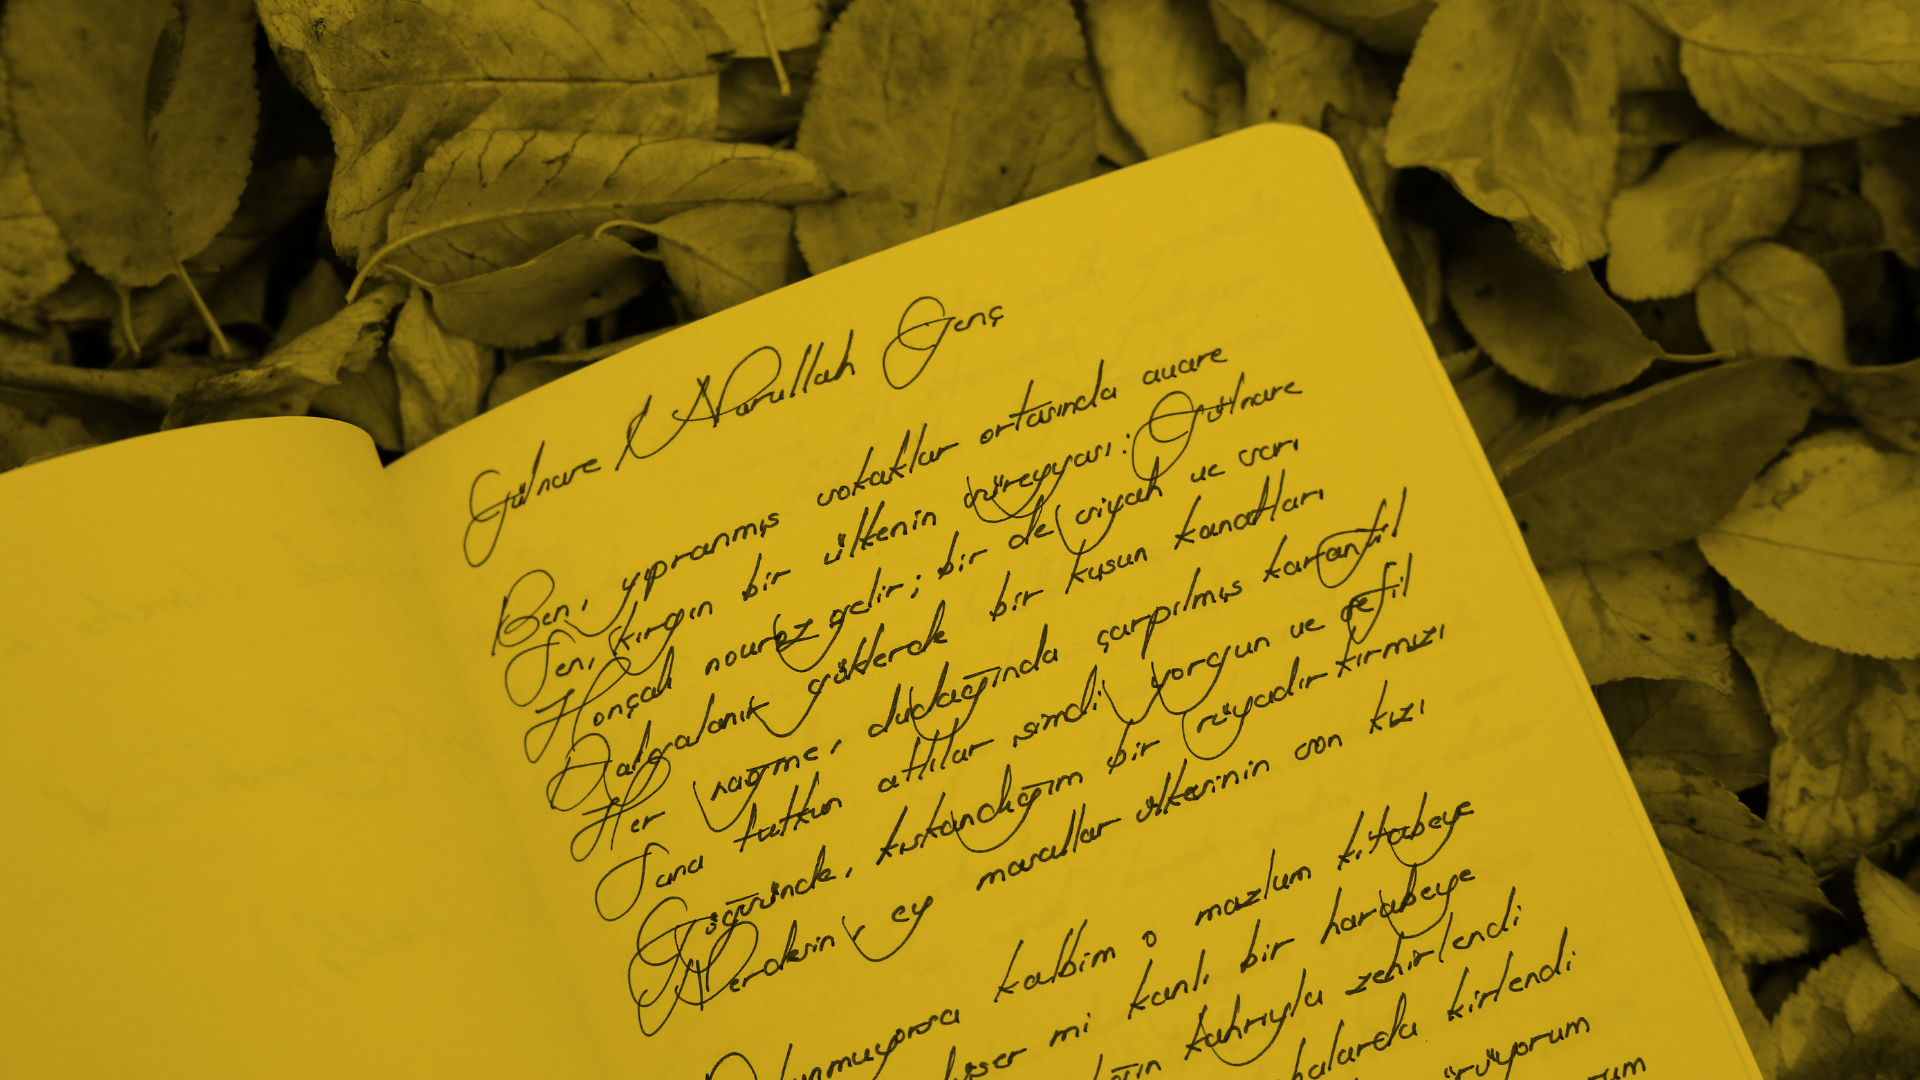 Gülnare / Nurullah Genç
Ben, yıpranmış sokaklar ortasında avare
Sen, kırgın bir ülkenin süreyyası: Gülnare
Honçalı novruz gelir; bir de siyah ve sarı
Dalgalanır göklerde bir kuşun kanatları
Her nağme, dudağında çarpılmış karanfil
Sana tutkun atlılar şimdi yorgun ve sefil
Göğsünde, kıskandığım bir rüyadır kırmızı
Nerdesin, ey masallar ülkesinin son kızı
kalbim o mazlum kitabeye
mi kanlı bir harabeye
kahrıyla zehirlendi
kirlendi